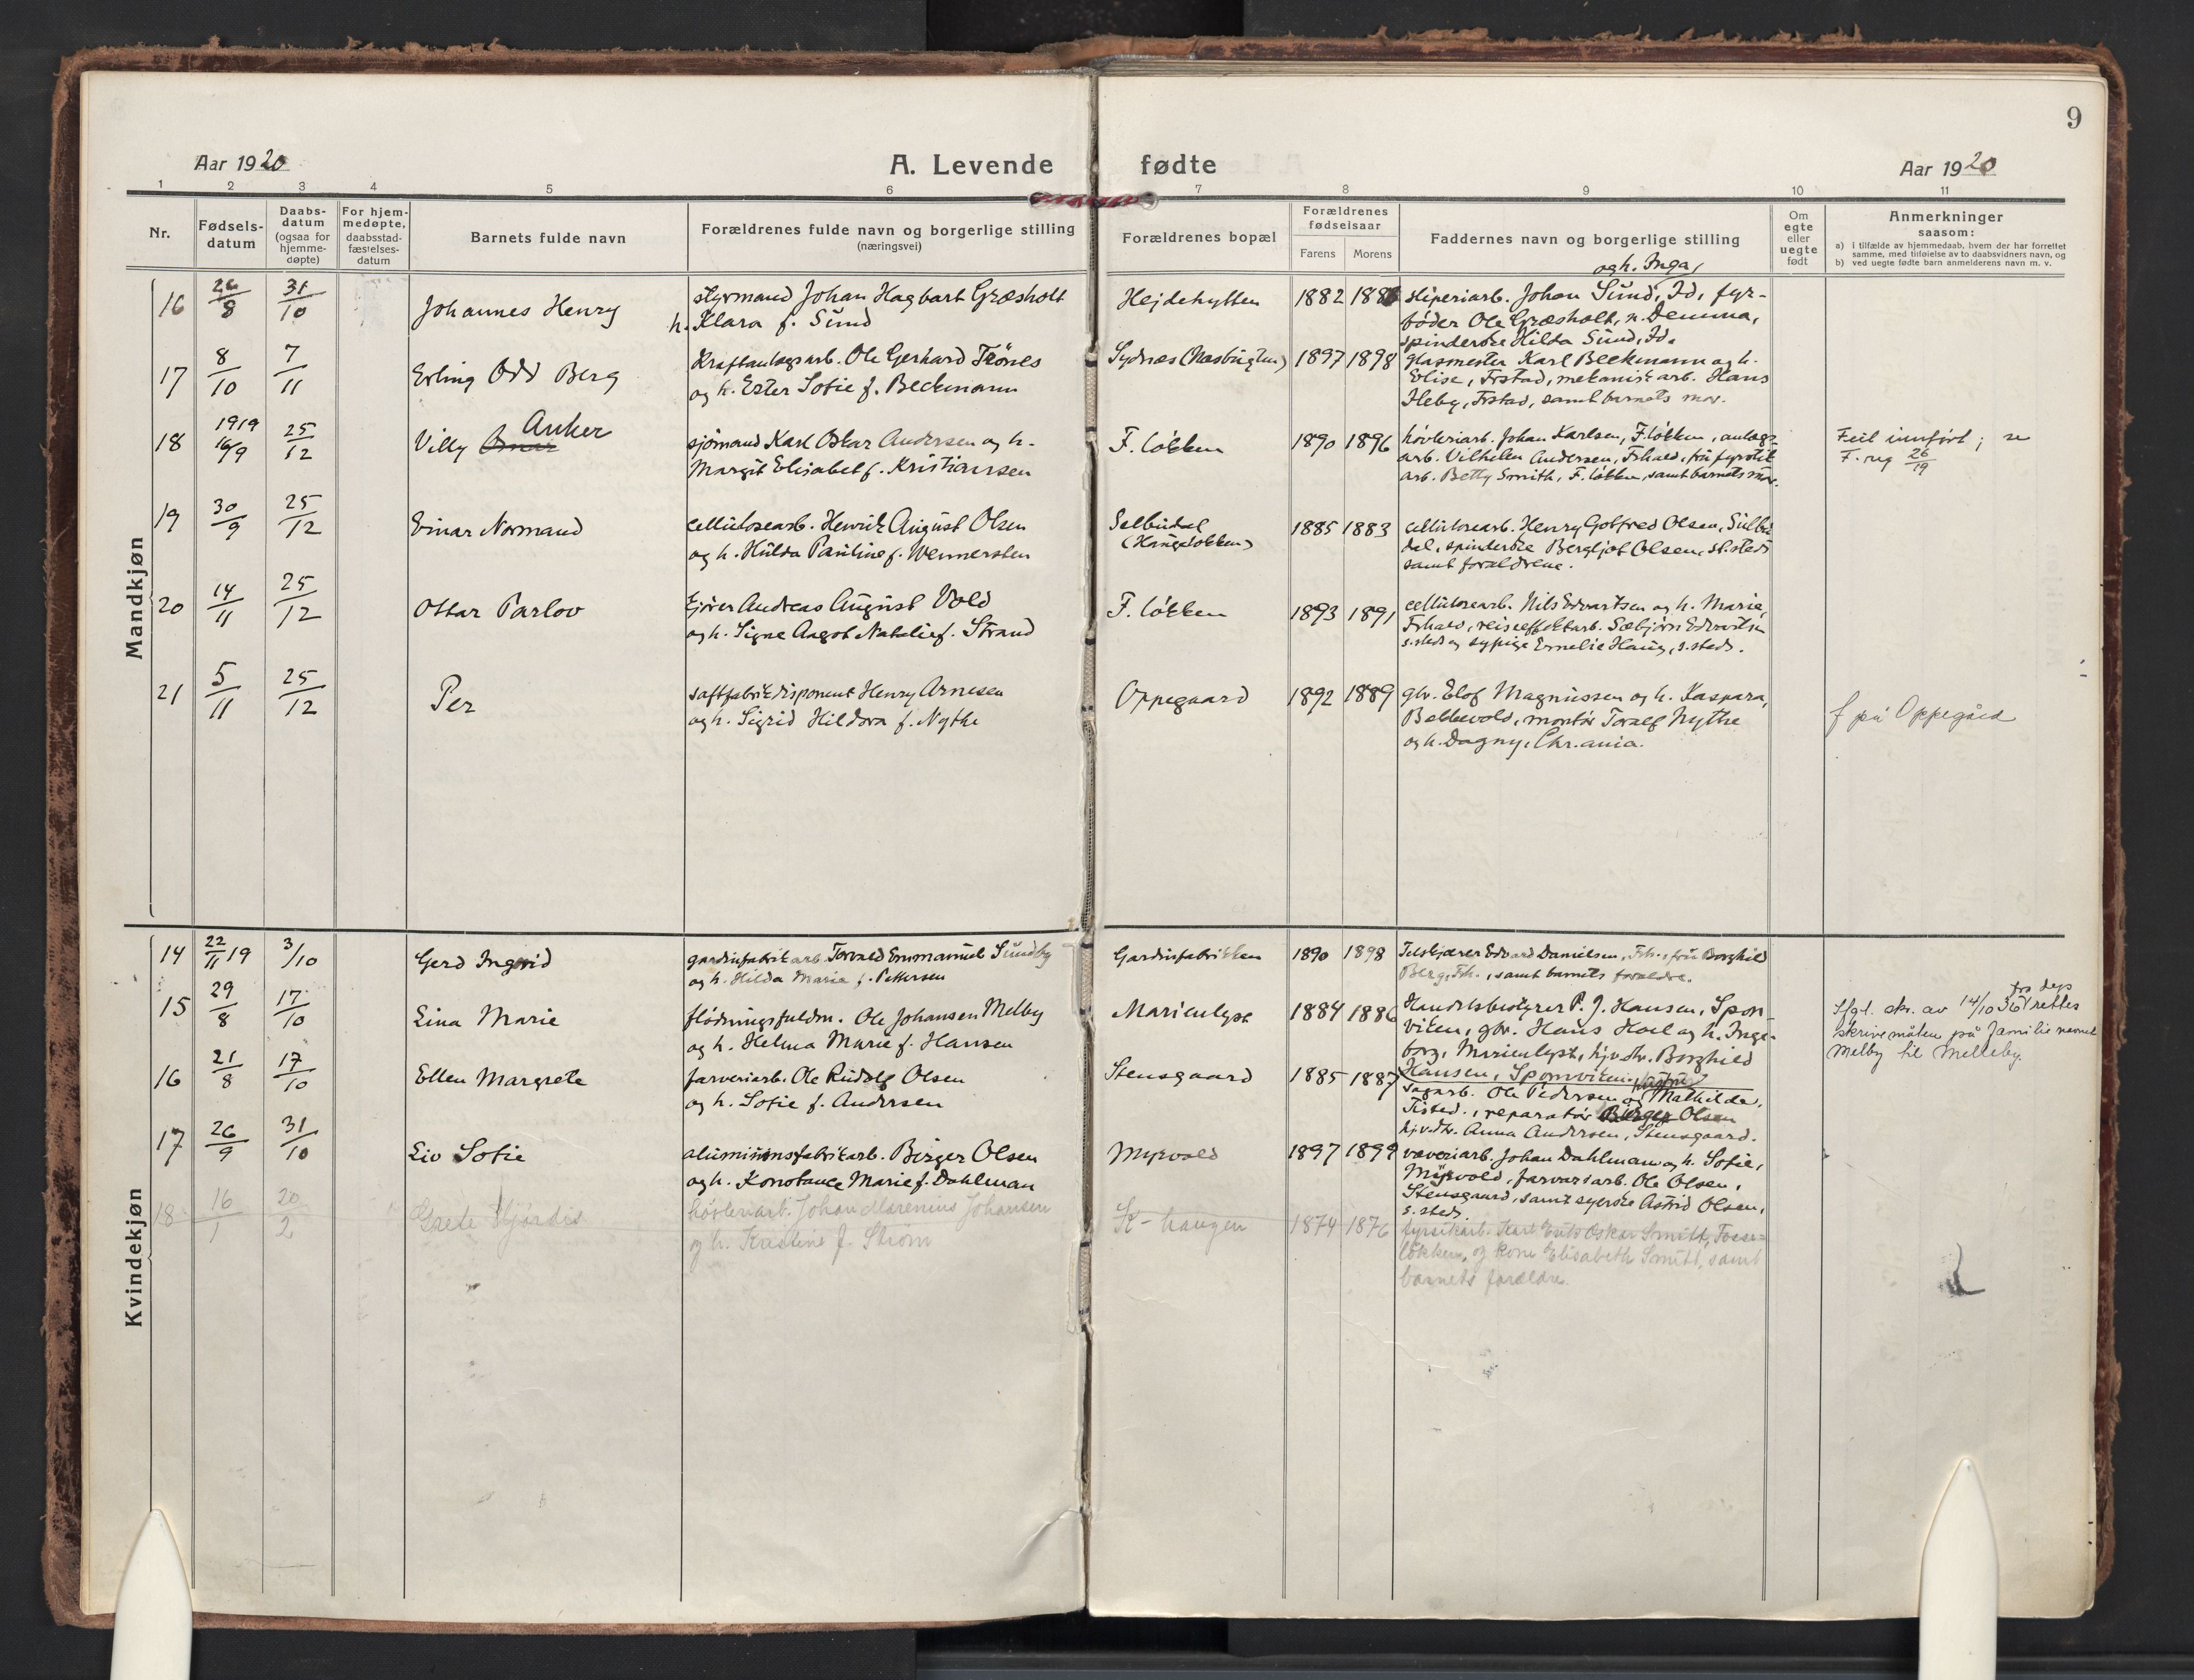 9
Aar 1920
A. Levende fødte
Aar 1920
1 2 3 4 5 6 7 8 9 10 11
Nr.
Fødsels-
datum
Daabs-
datum
(ogsaa for
hjemme-
døpte)
For hjem-
medøpte,
daabsstad-
fæstelses-
datum
Barnets fulde navn
Forældrenes fulde navn og borgerlige stilling
(næringsvei)
Forældrenes bopæl
Forældrenes
fødselsaar
Farens Morens
Faddernes navn og borgerlige stilling
Om
egte
eller
uegte
født
Anmerkninger
saasom:
a) i tilfælde av hjemmedaab, hvem der har forrettet
samme, med tilføielse av to daabsvidners navn, og
b) ved uegte fødte barn anmelderens navn m. v.
Mandkjøn
16 26/8 31/10 Johannes Henry
styrmand Johan Hagbart Græsholt
h. Klara f. Sund
Hejdehytten 1882
og h. Inga,
sliperiarb. Johan Sund, Id, fyr-
bøder Ole Græsholt, h. Demma,
spinderske Hilda Sund, Id.
17 8/10 7/11 Erling Odd Berg
Kraftanlægsarb. Ole Gerhard Trönes
og h. Ester Sofie f. Beckmann
Sydnæs 1897 1898
glasmester Karl Beckmann og h.
Elise, Frstad, mekanisk arb. Hans
Heby, Frstad, samt barnets mor.
18 1919 16/9 25/12 Villy Anker
sjömand Karl Oskar Andersen og h.
Margit Elisabet f. Kristiansen
F. løkken 1890 1896
høvleriarb. Johan Karlsen, F. løkken, anlægs-
arb. Vilhelm Andersen, Frhald, fru fyrstik
arb. Betty Smith, F. løkken, samt barnets mor.
Feil innført; se
F. reg 26/19
19 30/9 25/12 Einar Normand
cellulosearb. Henrik August Olsen
og h. Hulda Pauline f. Wennersten
Selbudal
(Haugeløkken)
1885 1883
cellulosearb. Henry Gotfred Olsen, Sülbu
dal, spinderske Bergljot Olsen, s. steds
samt forældrene.
20 14/11 25/12 Ottar Parlov
kjörer Andreas August Vold
og h. Signe Aagot Natalie f. Strand
F. løkken 1893 1891
cellulosearb. Nils Edvartsen og h. Marie,
Frhald, reiseeffektarb. Sæbjörn Edvartsen
s. steds og sypige Emelie Haug, s. steds.
21 5/11 25/12 Per
saftfabrikdisponent Henry Arnesen
og h. Sigrid Hildora f. Nythe
Oppegaard 1892 1889
gbr. Elof Magnussen og h. Kaspara,
Bellevold, montör Toralf Nythe
og h. Dagny, Chr.ania.
f på Oppegård
Kvindekjøn
14 22/11 19 3/10 Gerd Ingrid
gardinfabrikarb. Torvald Emmanuel Sundby
og h. Hilda Marie f. Pettersen
Gardinfabrikken 1890 1898
Edvard Danielsen, Frh., fru Borghild
Berg, Frh., samt barnets forældre.
15 29/8 17/10 Lina Marie
flödningsfuldm. Ole Johansen Melby
og h. Helma Marie f. Hansen
Marienlyst 1884 1886
Handelsbestyrer P. J. Hansen, Spon-
viken, gbr. Hans Hoel og h. Inge-
borg, Marienlyst, hjv. dtr. Borghild
Hansen, Sponviken,
Ifgl. skr. av 14/10 36 fra deps rettes
skrivemåten på familienavnet
Melby til Melleby.
16 21/8 17/10 Ellen Margrete
farveriarb. Ole Rudolf Olsen
og h. Sofie f. Andersen
Stensgaard 1885 1887
sagarb. Ole Pedersen og Mathilde,
Tisted., reparatør Birger Olsen
hjv. dtr. Anna Andersen, Stensgaard.
17 26/9 31/10 Liv Sofie
aluminiumsfabrikarb. Birger Olsen
og h. Konstance Marie f. Dahlman
Myrvold 1897 1899
væveriarb. Johan Dahlman og h. Sofie,
Myrvold, farveriarb. Ole Olsen,
Stensgaard, samt syerske Astrid Olsen,
s. steds.
18 16/1 20/2 Grete Hjördis
høvleriarb. Johan Marenius Johansen
og h. Kristine f. Ström
K-haugen 1874 1876
fyrstikarb. Karl Oskar Smitt, Fosse-
løkken, og kone Elisabeth Smitt, samt
barnets forældre.